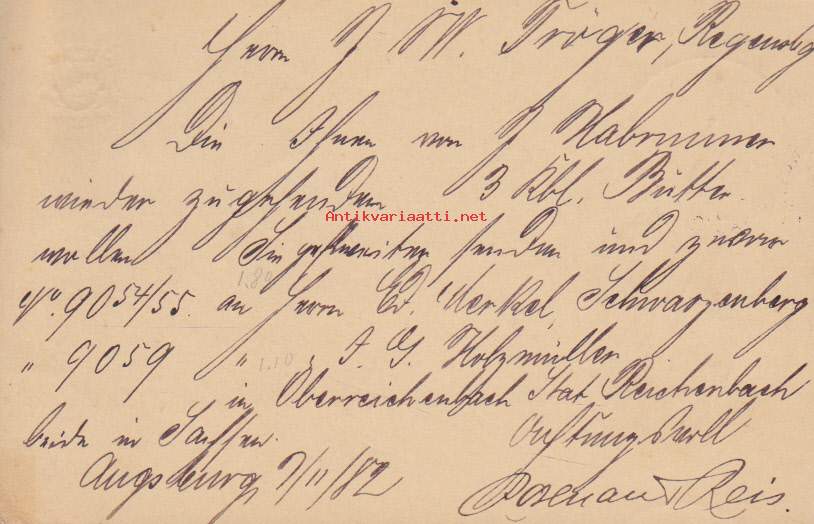 Herrn J. W. Tröger, Regensbg
Die Ihnen von J. Habrunner
wieder zugehenden 3 Kbl. Butter
Antikvariaatti.net
wollen Sie gefl weiter senden und zwar
No. 9054/55. an Herrn Ed. Merkel, Schwarzenberg
1.80
" 9059 " " A. G. Holzmüller
1.10
in Oberreichenbach Stat Reichenbach
beide in Sachsen.
Achtungsvoll
Augsburg, 7/11/82
Rosenau & Reis.